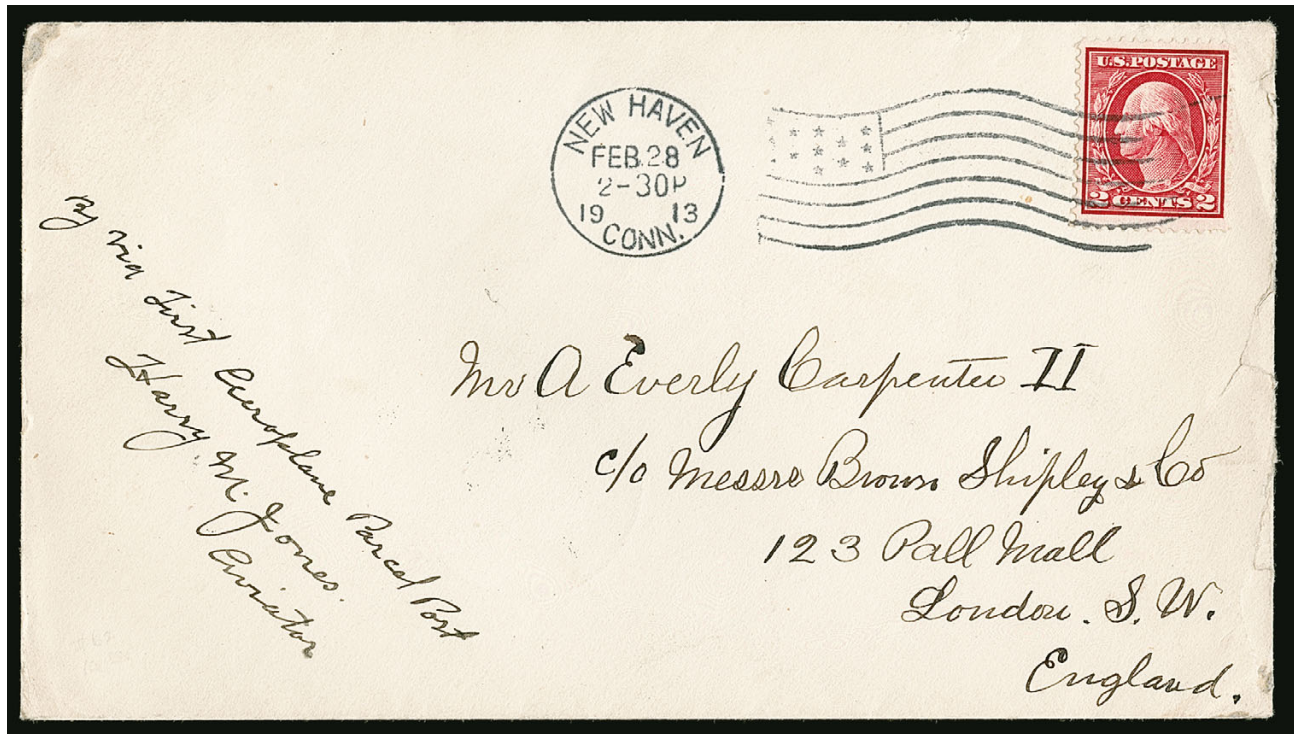 NEW HAVEN
FEB. 28
2-30P
19 13
CONN.
U.S. POSTAGE
2 CENTS 2
By via First Aeroplane Parcel Post
Harry M. Jones.
Aviator
Mr A Everly Carpenter II
c/o Messrs Brown Shipley & Co
123 Pall Mall
London. S. W.
England.